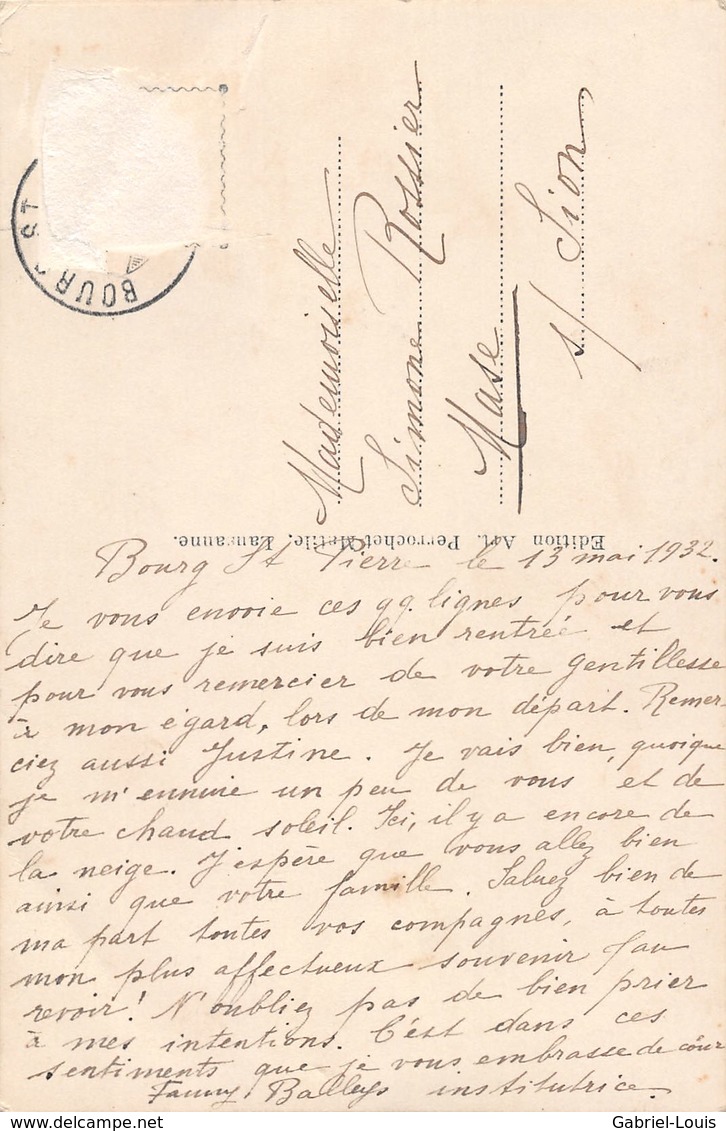 BOUR ST
Mademoiselle
Simone Rossier
Mase
s/ Sion
Edition Art. Perrochet-Matile, Lausanne.
Bourg St Pierre le 13 mai 1932.
Je vous envoie ces qq. lignes pour vous
dire que je suis bien rentrée et
pour vous remercier de votre gentillesse
à mon égard, lors de mon départ. Remer-
ciez aussi Justine. Je vais bien, quoique
je m'ennuie un peu de vous et de
votre chaud soleil. Ici, il y a encore de
la neige. J'espère que vous allez bien
ainsi que votre famille. Saluez bien de
ma part toutes vos compagnes, à toutes
mon plus affectueux souvenir
revoir! N'oubliez pas de bien prier
à mes intentions. C'est dans ces
sentiments que je vous embrasse de cœur
Fanny Balleys institutrice.
Gabriel-Louis